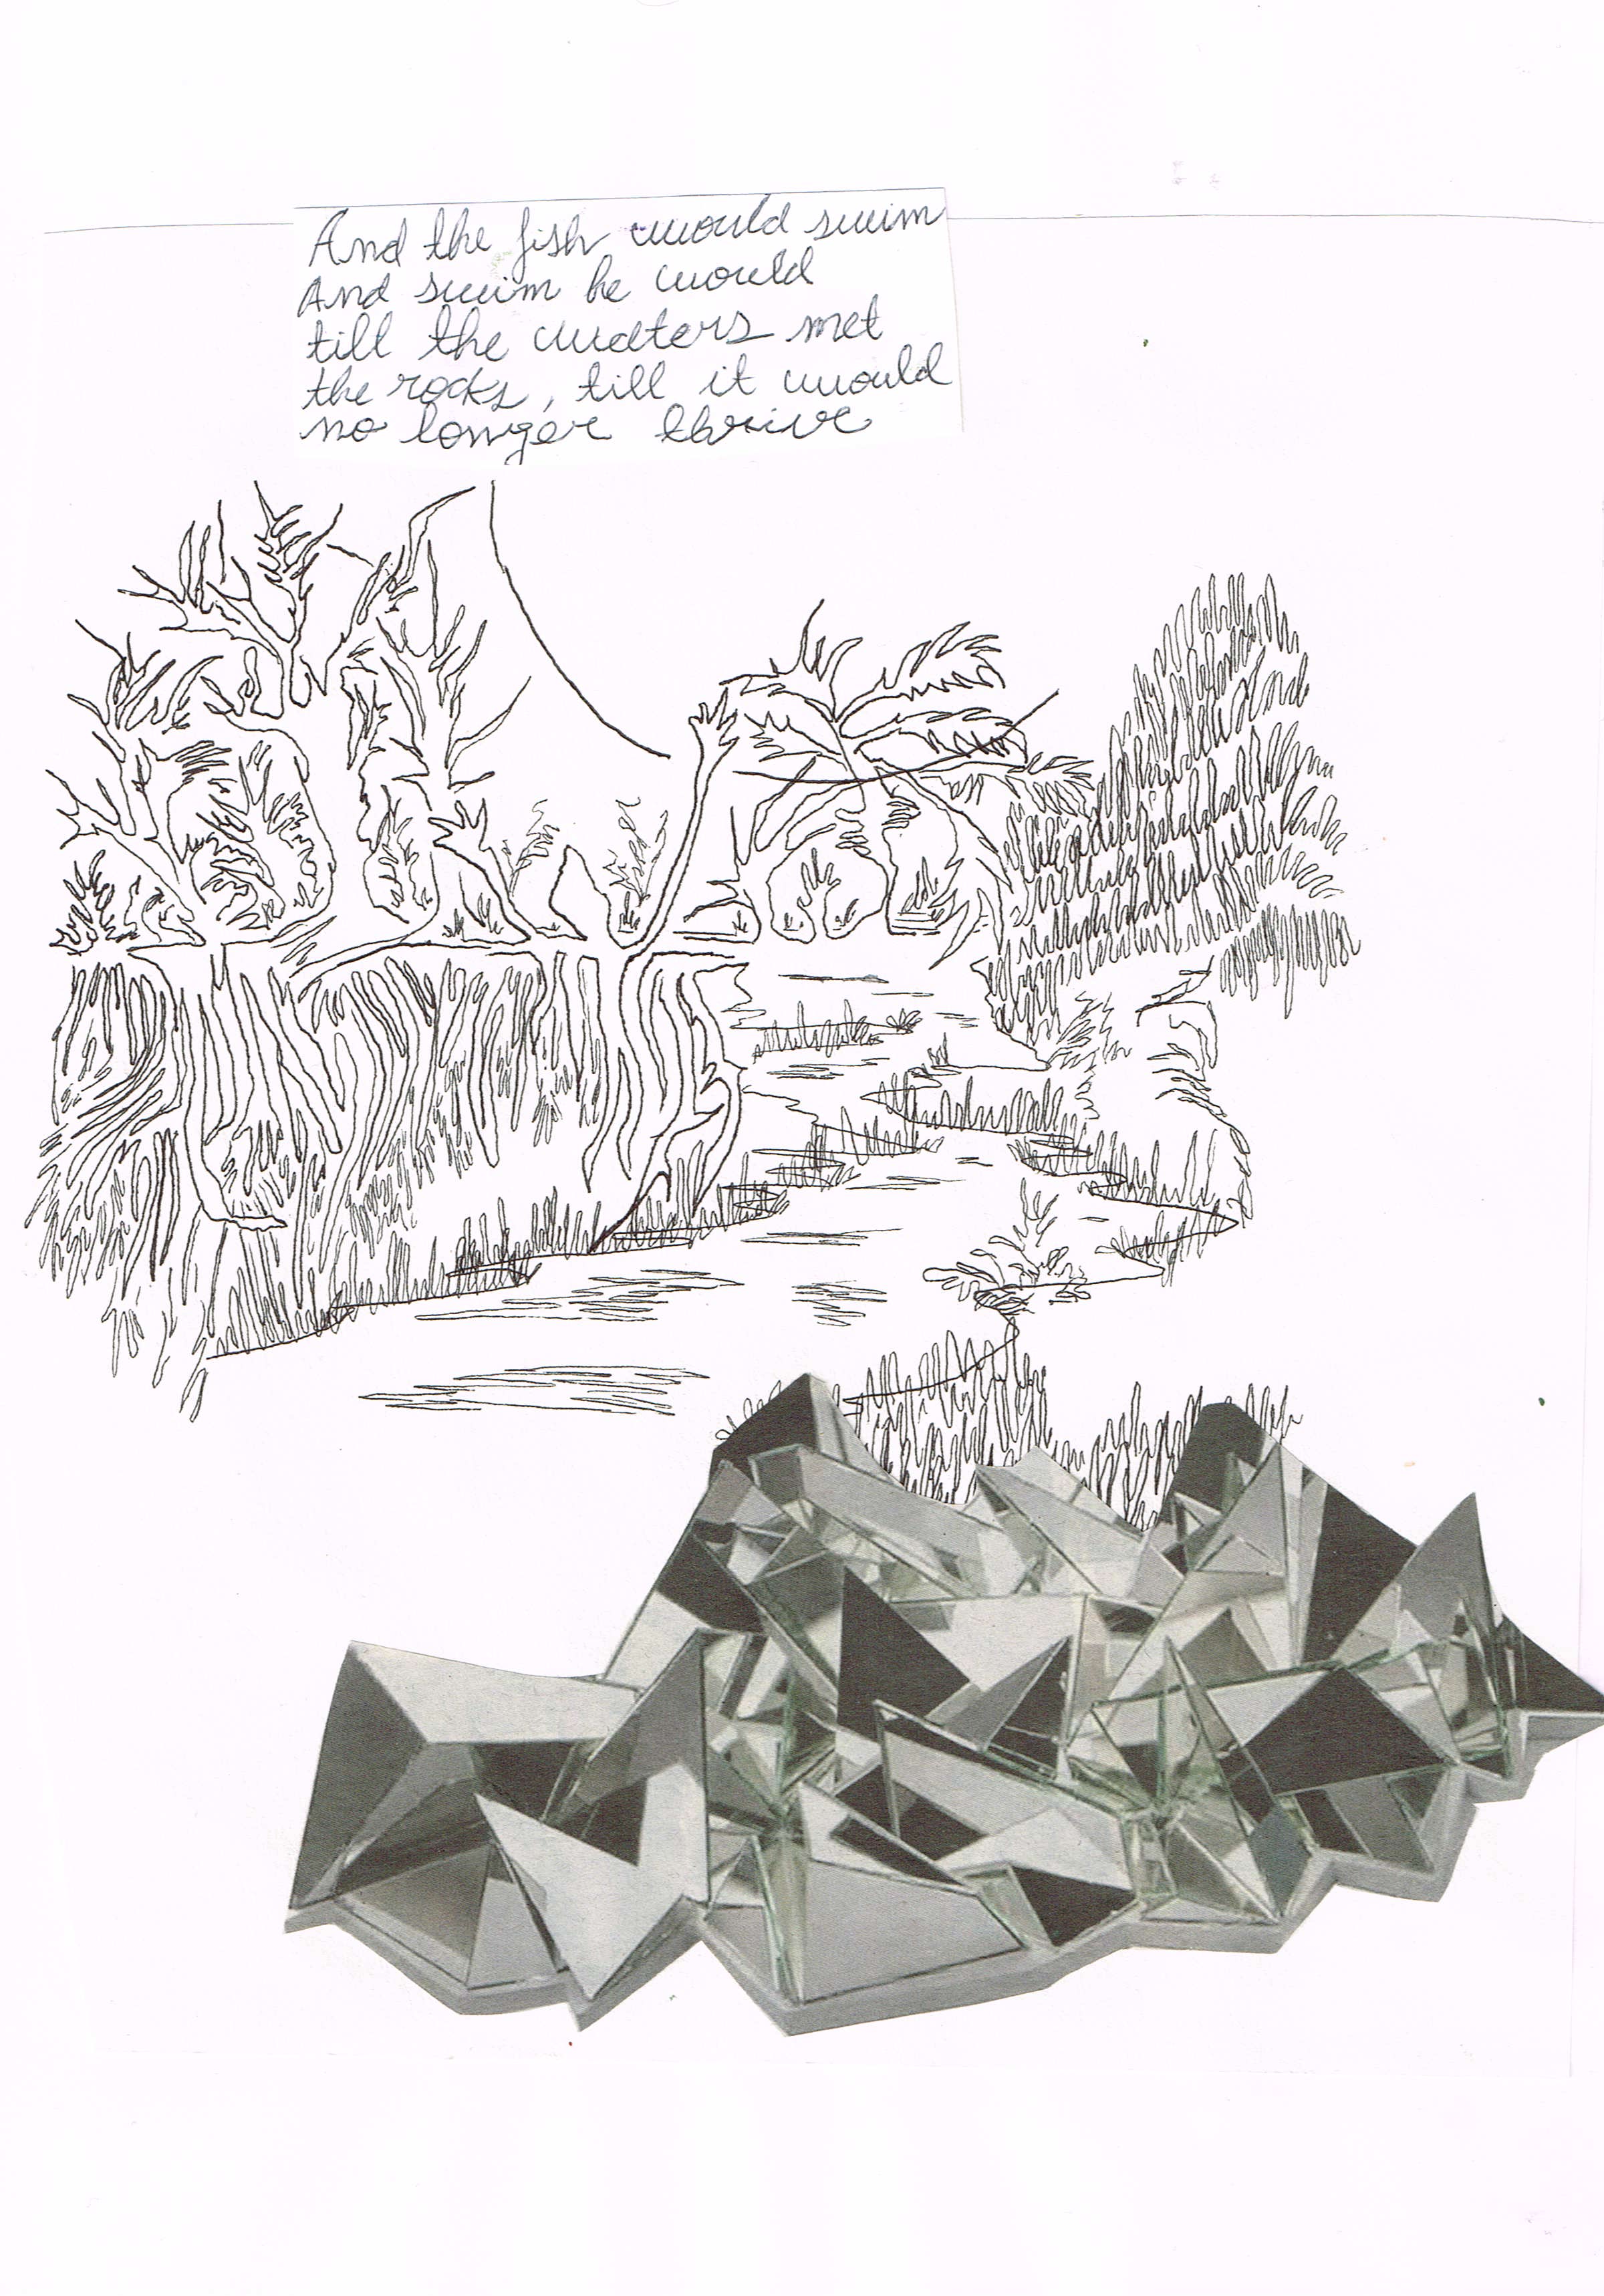 And the fish would swim
And swim he would
till the waters met
the rocks, till it would
no longer thrive